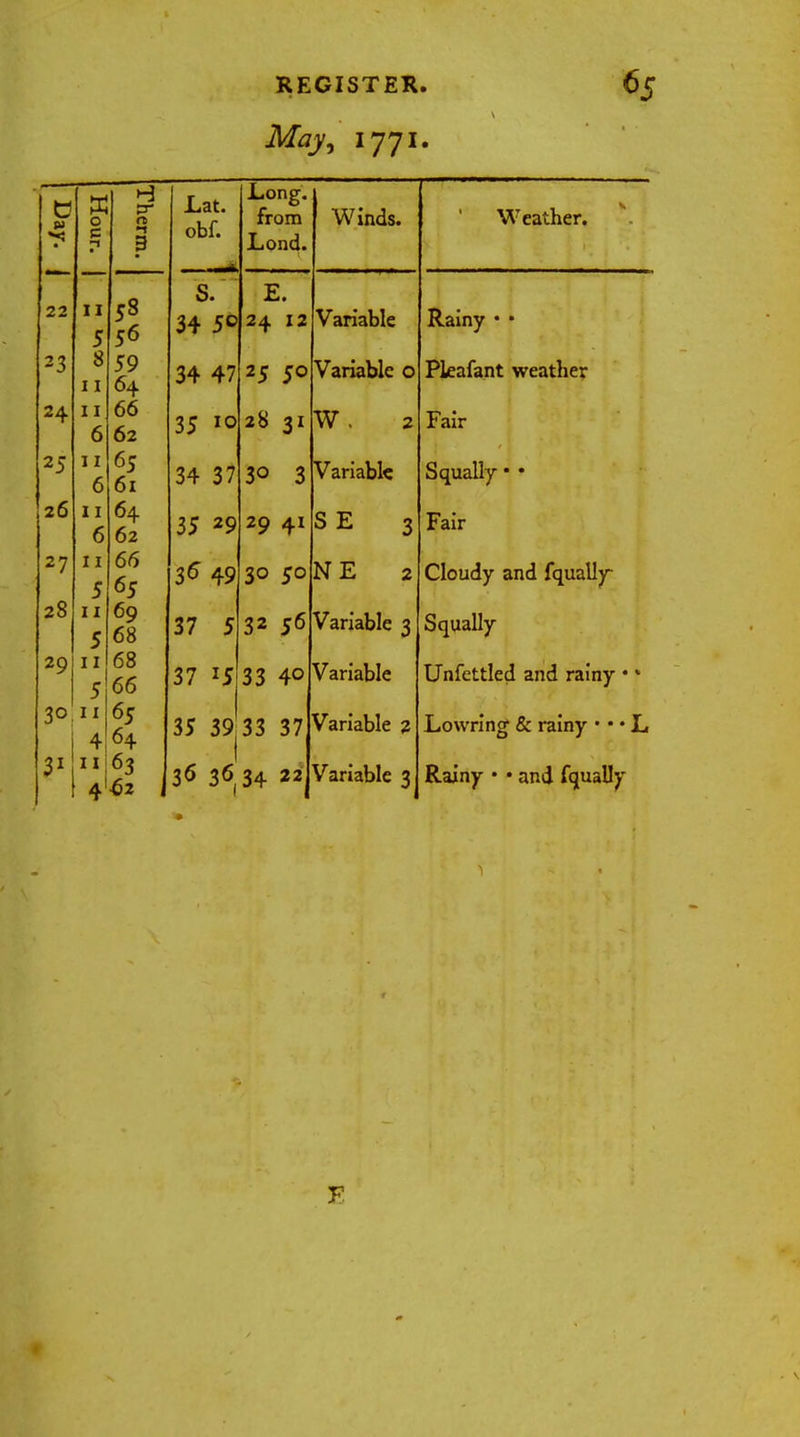 REGISTER. 65
May, 1771.
Day. Hour. Therm. Lat. obſ. Long. from Lond. Winds. Weather.
S. E.
22 11 58 34 50 24 12 Variable Rainy • •
5 56
23 8 59 34 47 25 50 Variable 0 Pleaſant weather
11 64
24 11 66 35 10 28 31 W. 2 Fair
6 62
25 11 65 34 37 30 3 Variable Squally • •
6 61
26 11 64 35 29 29 41 S E 3 Fair
6 62
27 11 66 36 49 30 50 N E 2 Cloudy and ſqually
5 65
28 11 69 37 5 32 56 Variable 3 Squally
5 68
29 11 68 37 15 33 40 Variable Unſettled and rainy • •
5 66
30 11 65 35 39 33 37 Variable 2 Lowring & rainy • • • L
4 64
31 11 63 36 36 34 22 Variable 3 Rainy • • and ſqually
4 62
E